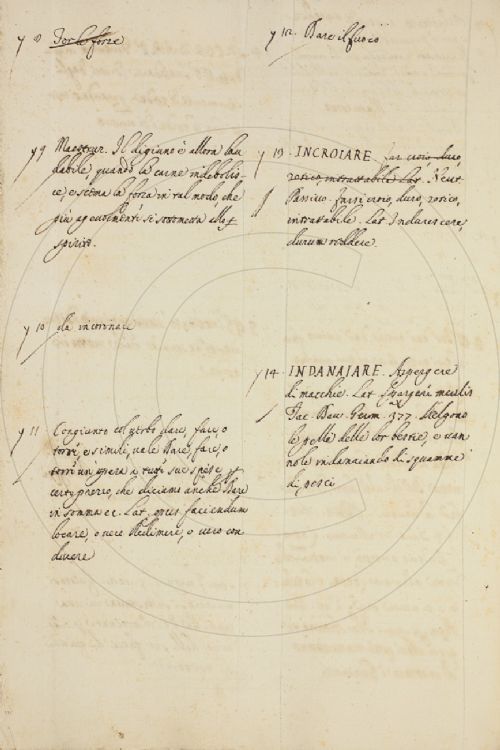 y 8 Tor le forze
y 9 Maestruz. Il digiuno è allora lau
dabile, quando la carne indebolis-
ce, e scema la forza in tal modo, che
più agevolmente si sottometta allo
spirito.
y 10 da incrinare
y 11 Congiunto col verbo dare, fare, o
torre, e simili, vale Dare, fare, o
torre un opera a tutte sue spese p
certo prezzo, che diciamo anche Dare
in somma ec. Lat. opus faciendum
locare, o vero Redimere, o vero con
ducere
y 12. Dare il fuoco
y 13. INCROIARE far croio duro,
rozico, intrattabile Lat. Neut
Passivo. Farsi croio, duro, rozico,
intrattabile. Lat. Indurescere,
durum reddere.
y 14. INDANAIARE. Aspergere
di macchie. Lat. Spargere maculis
Fac. Dav. Germ. 377. Scelgono
le pelle delle lor bestie, e van
nole indanaiando di squamme
di pesci